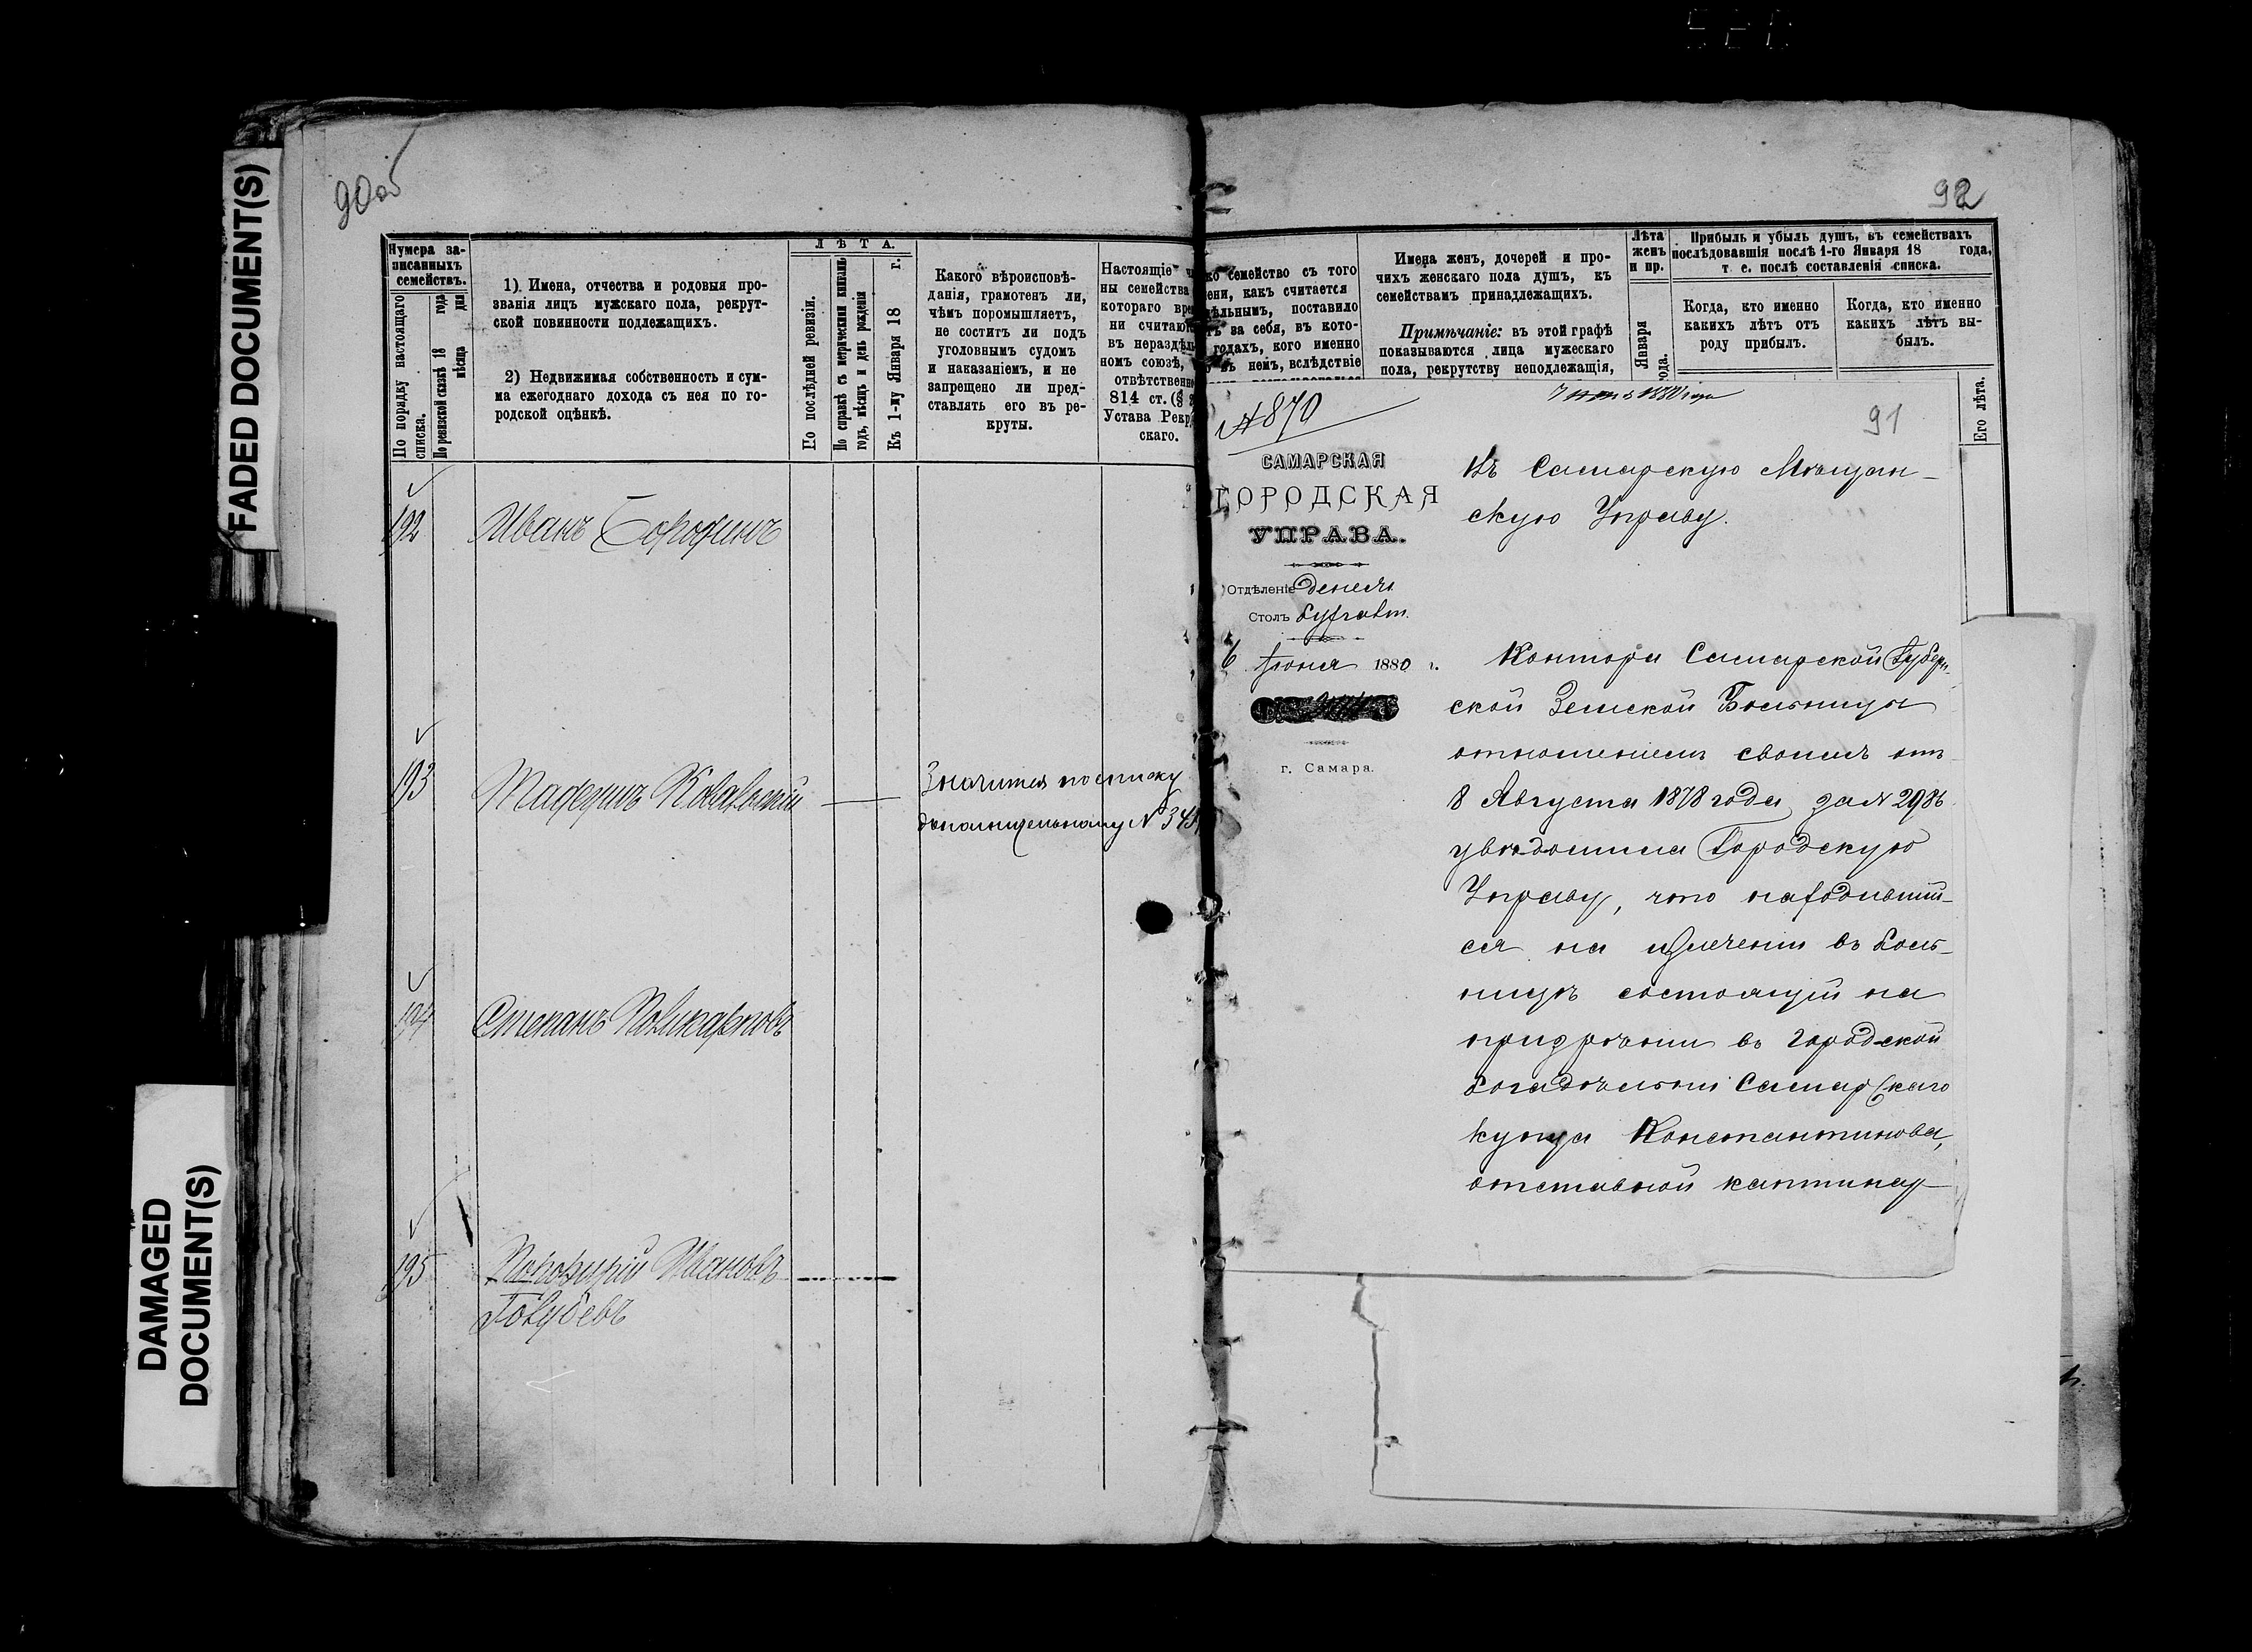 FADED DOCUMENT(S)
DAMAGED
DOCUMENT(S)
90 об
Нумера за-
писанныхъ
семействъ.
По порядку настоящаго
списка.
По ревизской сказкѣ 18 года
мѣсяца дня
1) Имена, отчества и родовыя про-
званія лицъ мужскаго пола, рекрут-
ской повинности подлежащихъ.
2) Недвижимая собственность и сум-
ма ежегоднаго дохода съ нея по го-
родской оцѣнкѣ.
ЛѢТА.
По послѣдней ревизіи.
По справкѣ съ метрическими книгами
годъ, мѣсяцъ и день рожденія
Къ 1-му Января 18 г.
Какого вѣроисповѣ-
данія, грамотенъ ли,
чѣмъ поромышляетъ,
не соститъ ли подъ
уголовнымъ судомъ
и наказаніемъ, и не
запрещено ли пред-
ставлять его въ ре-
круты.
Настоящіе
ны семейства
котораго
ни считаю
въ нераздѣль
номъ союзѣ,
отвѣтственн
814 ст. (§
Устава Рекр
скаго.
192 Иванъ Бородинъ
193
Значится по списку
дополнительному № 345
194 Степанъ Поликарповъ
195 Ивановъ
Голубевъ
92
семейство съ того
ени, какъ считается
дѣльнымъ, поставило
за себя, въ кото-
годахъ, кого именно
въ немъ, вслѣдствіе
Имена женъ, дочерей и про-
чихъ женскаго пола душъ, къ
семействамъ принадлежащихъ.
Примѣчаніе: въ этой графѣ
показываются лица мужескаго
пола, рекрутству неподлежащія,
Лѣта
женъ
и пр.
Января
года.
Прибыль и убыль душъ, въ семействахъ
послѣдовавшія послѣ 1-го Января 18 года,
т. е. послѣ составленія списка.
Когда, кто именно
какихъ лѣтъ отъ
роду прибылъ.
Когда, кто именно
какихъ лѣтъ вы-
былъ.
Его лѣта.
№ 870
91
САМАРСКАЯ
ГОРОДСКАЯ
УПРАВА.
Отдѣленіе
Столъ
6 Іюня 1880 г.
г. Самара.
Въ Самарскую Мѣщан-
скую Управу.
Контора Самарской Губерн-
ской Земской Больницы
отношеніемъ своимъ отъ
8 Августа 1878 года за № 2986
увѣдомила Городскую
Управу, что находивший-
ся на излеченіи въ боль-
ницѣ состоящій на
призрѣніи въ городской
богадѣльни Самарскаго
купца Константинова,
отставной каптенар-